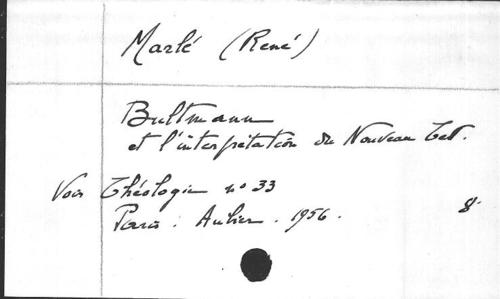 Marlé (René)
Bultmann
et l'interprétation du Nouveau Test.
Voir Théologie n° 33
Paris : Aubier. 1956. 8°